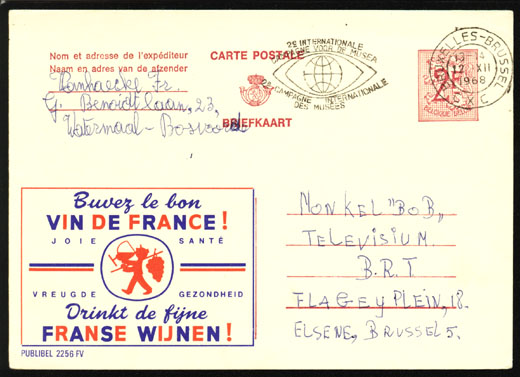 Nom et adresse de l'expéditeur
Naam en adres van de afzender
CARTE POSTALE
BRIEFKAART
2E INTERNATIONALE
CAMPAGNE VOOR DE MUSEA
2E CAMPAGNE INTERNATIONALE
DES MUSÉES
BRUXELLES-BRUSSEL
12 XII
1968
2F
Fr.
G. Benoidtlaan, 23,
Watermaal-Bosvoorde
Buvez le bon
VIN DE FRANCE !
JOIE SANTÉ
VREUGDE GEZONDHEID
Drinkt de fijne
FRANSE WIJNEN !
PUBLIBEL 2256 FV
MONKEL "BOB"
TELEVISIUM.
B.R.T
FLAGEYPLEIN, 18.
ELSENE, BRUSSEL 5.